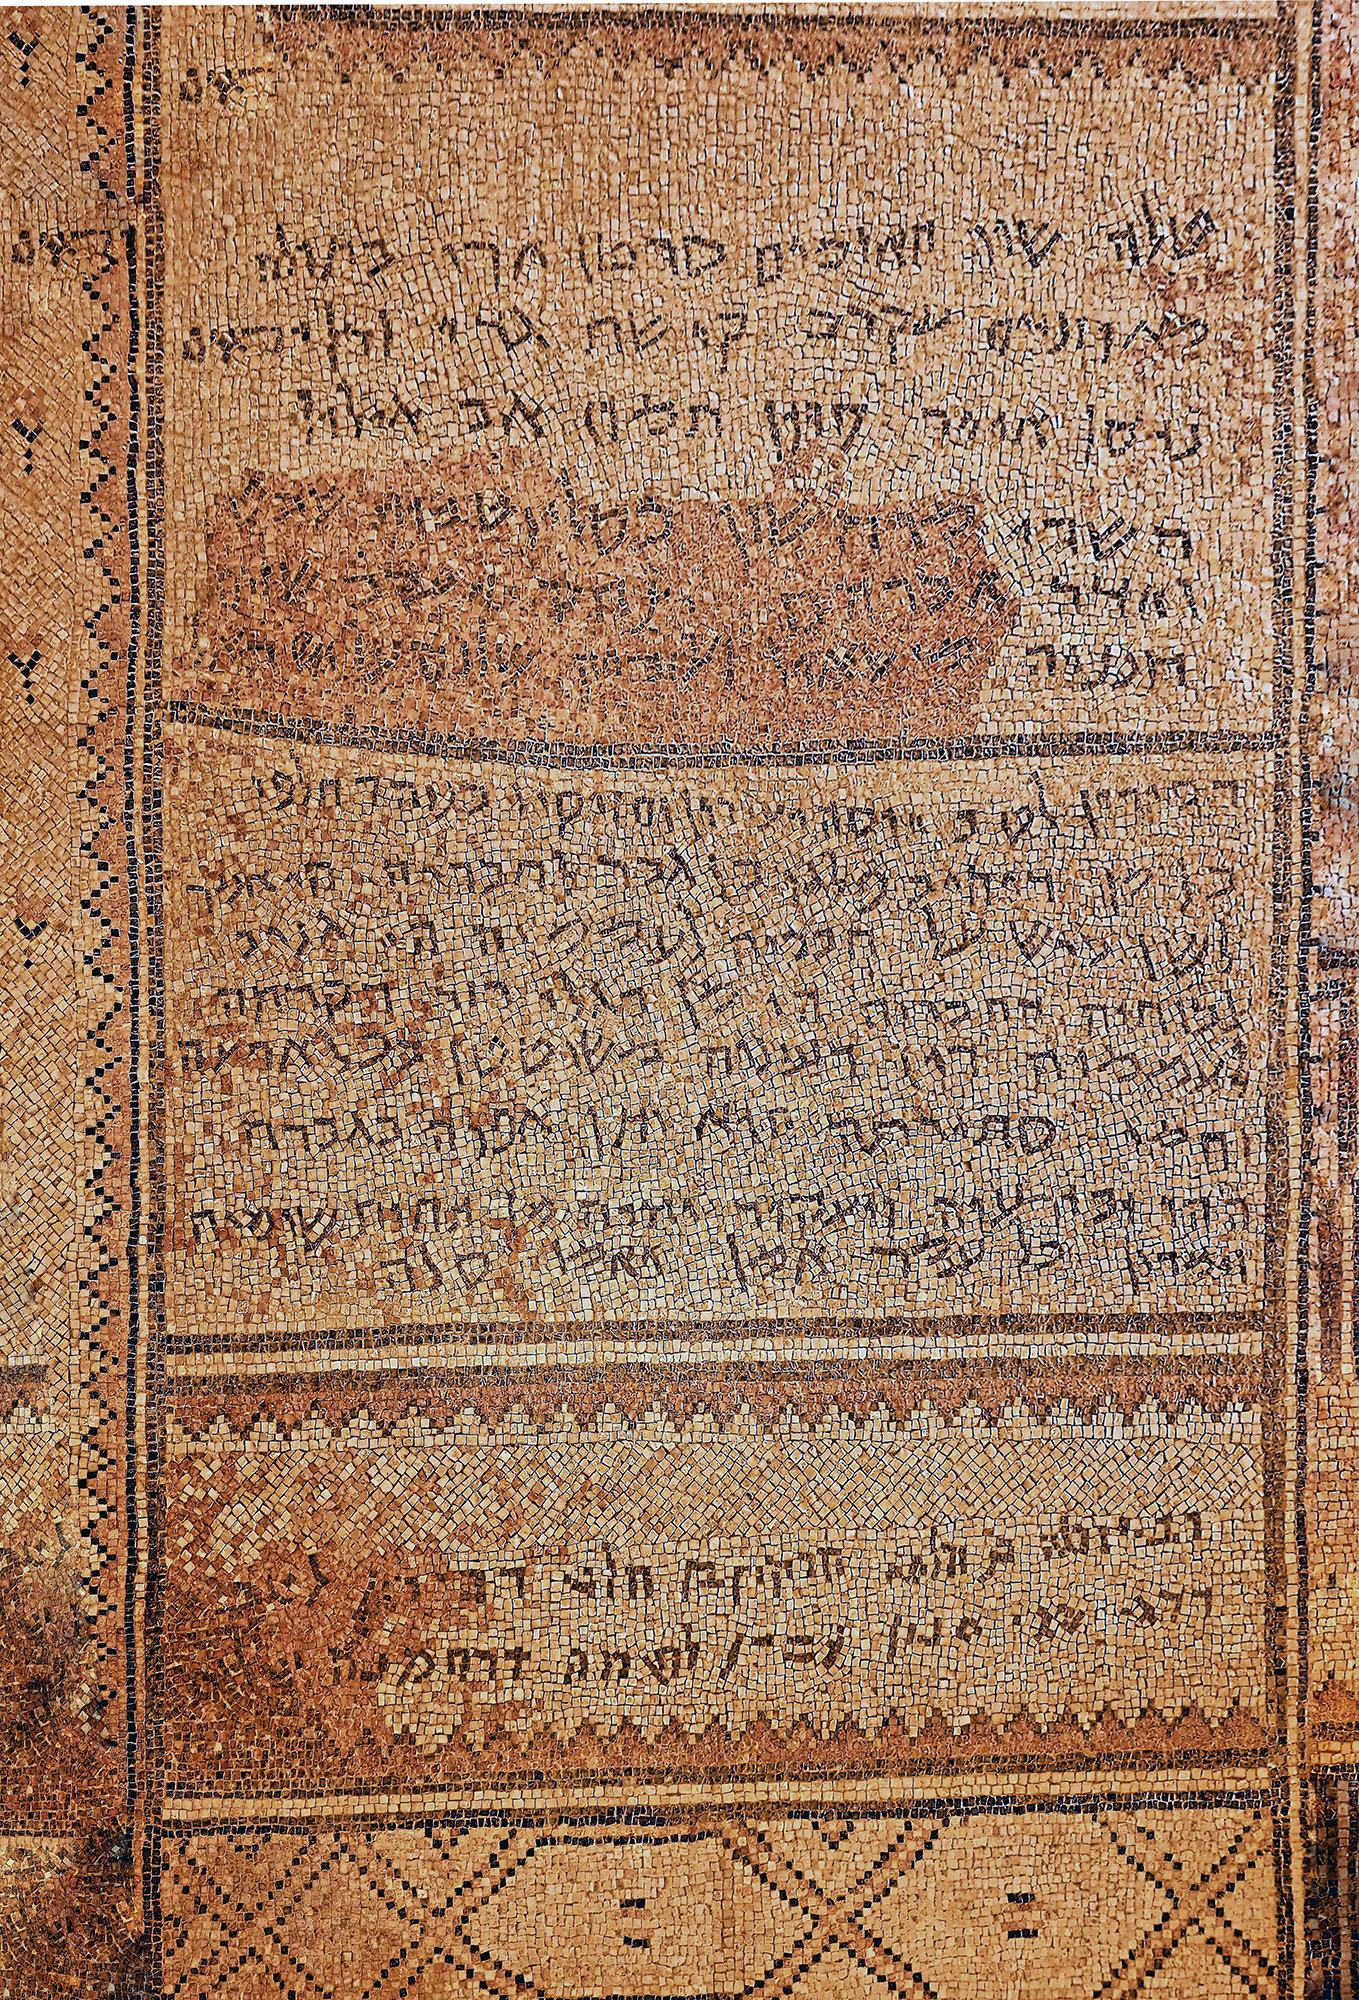 טלה שור תאומים סרטן ארי בתולה
מאוזניים עקרב קשת גדי ודלי דגים
ניסן אייר סיוון תמוז אב אילול
תשרי מרחשון כסליו טבית שבט
ואדר אברהם יצחק יעקב שלום
חנניה מישאיל ועזריה שלום על ישראל
דכירין לטב יוסה ועזרון וחזיקיו בנוה דחלפי
כל מן דיהיב פלגו בן גבר לחבריה הי אמר
לשן ביש על חבריה לעממיה הי גניב
צבותיה דחבריה הי מן דגלי רזה דקרתה
לעממיה דין דעינוה משוטטן בכל ארעה
וחמי סתירתה הוא יתן אפוה בגברה
ההו ובזרעיה ויעקור יתיה מן תחות שומיה
וימרון כל עמה אמן ואמן סלה
רבי יוסה בן חלפי חזקיו בן חלפי דכירין לטב
דסגי סגי הנון עבדו לשמה דרחמנה שלום